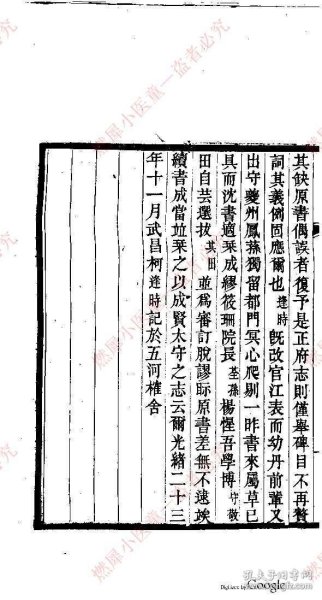 其缺原書偶誤者復予是正府志則僅舉碑目不再贅
詞其義例固應爾也逢時既改官江表而幼丹前輩又
出守夔州鳳蓀獨留都門冥心爬剔一昨書來屬草已
具而沈書適栞成繆筱珊院長荃孫楊惺吾學博守敬
田自芸選拔其田並爲審訂脫謬眎原書差無不逮竢
續書成當竝栞之以成賢太守之志云爾光緒二十三
年十一月武昌柯逢時記於五河榷舍
燃犀小医童—盗者必究
Digitized by Google